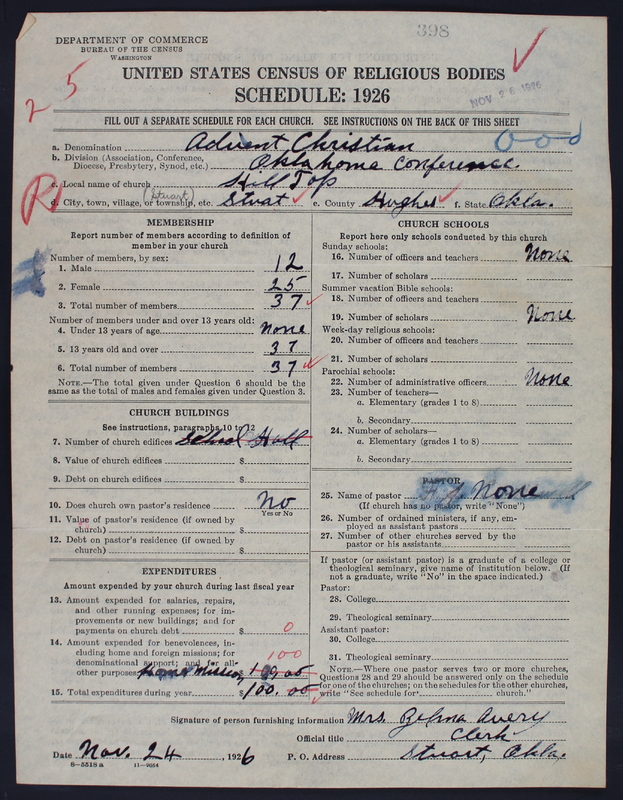 398
DEPARTMENT OF COMMERCE
BUREAU OF THE CENSUS
WASHINGTON
25
UNITED STATES CENSUS OF RELIGIOUS BODIES
SCHEDULE: 1926
NOV 26 1926
FILL OUT A SEPARATE SCHEDULE FOR EACH CHURCH. SEE INSTRUCTIONS ON THE BACK OF THIS SHEET
000
a. Denomination Advent Christian
b. Division (Association, Conference, Diocese, Presbytery, Synod, etc.) Oklahoma Conference.
c. Local name of church Hill Top
R
(Stuart)
d. City, town, village, or township, etc. Stuat e. County Hughes f. State Okla.
MEMBERSHIP
Report number of members according to definition of
member in your church
Number of members, by sex:
1. Male 12
2. Female 25
3. Total number of members 37
Number of members under and over 13 years old:
4. Under 13 years of age None
5. 13 years old and over 37
6. Total number of members 37
NOTE.—The total given under Question 6 should be the
same as the total of males and females given under Question 3.
CHURCH BUILDINGS
See instructions, paragraphs 10 to 12
7. Number of church edifices School Hall
8. Value of church edifices $
9. Debt on church edifices $
10. Does church own pastor's residence No
Yes or No
11. Value of pastor's residence (if owned by
church) $
12. Debt on pastor's residence (if owned by
church) $
EXPENDITURES
Amount expended by your church during last fiscal year
13. Amount expended for salaries, repairs,
and other running expenses; for im-
provements or new buildings; and for
payments on church debt $ 0
14. Amount expended for benevolences, in-
cluding home and foreign missions; for
denominational support; and for all
100
other purposes Home Mission $ 100.00
15. Total expenditures during year $ 100.00
CHURCH SCHOOLS
Report here only schools conducted by this church
Sunday schools:
16. Number of officers and teachers None
17. Number of scholars
Summer vacation Bible schools:
18. Number of officers and teachers
19. Number of scholars None
Week-day religious schools:
20. Number of officers and teachers
21. Number of scholars
Parochial schools:
22. Number of administrative officers None
23. Number of teachers—
a. Elementary (grades 1 to 8)
b. Secondary
24. Number of scholars—
a. Elementary (grades 1 to 8)
b. Secondary
PASTOR
25. Name of pastor None
(If church has no pastor, write "None")
26. Number of ordained ministers, if any, em-
ployed as assistant pastors
27. Number of other churches served by the
pastor or his assistants
If pastor (or assistant pastor) is a graduate of a college or
theological seminary, give name of institution below. (If
not a graduate, write "No" in the space indicated.)
Pastor:
28. College
29. Theological seminary
Assistant pastor:
30. College
31. Theological seminary
NOTE.—Where one pastor serves two or more churches,
Questions 28 and 29 should be answered only on the schedule
for one of the churches; on the schedules for the other churches,
write "See schedule for church."
Signature of person furnishing information Mrs. Zelma Avery
Official title Clerk
Date Nov. 24, 1926 P. O. Address Stuart, Okla.
8—5518 a 11—9064